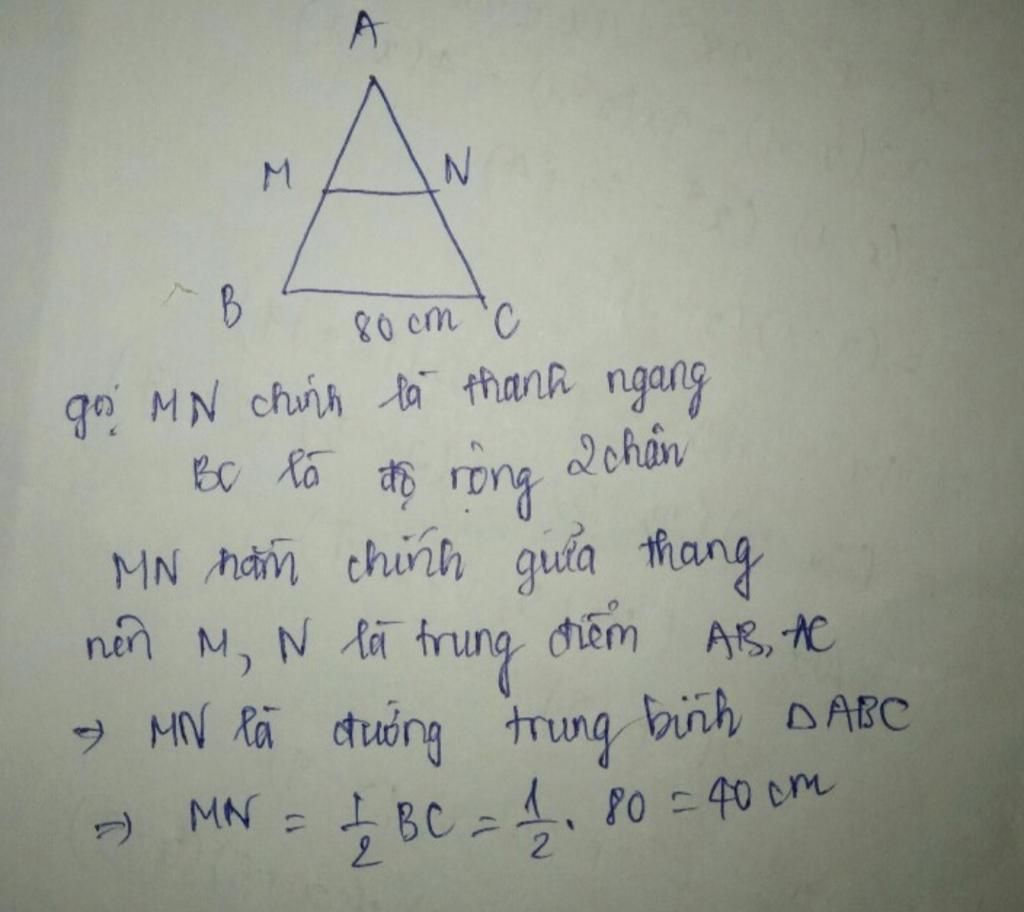 A
M N
B C
80 cm
gọi MN chính là thanh ngang
BC là độ rộng 2 chân
MN nằm chính giữa thang
nên M, N là trung điểm AB, AC
→ MN là đường trung bình ΔABC
⇒ MN = 1/2 BC = 1/2 . 80 = 40 cm